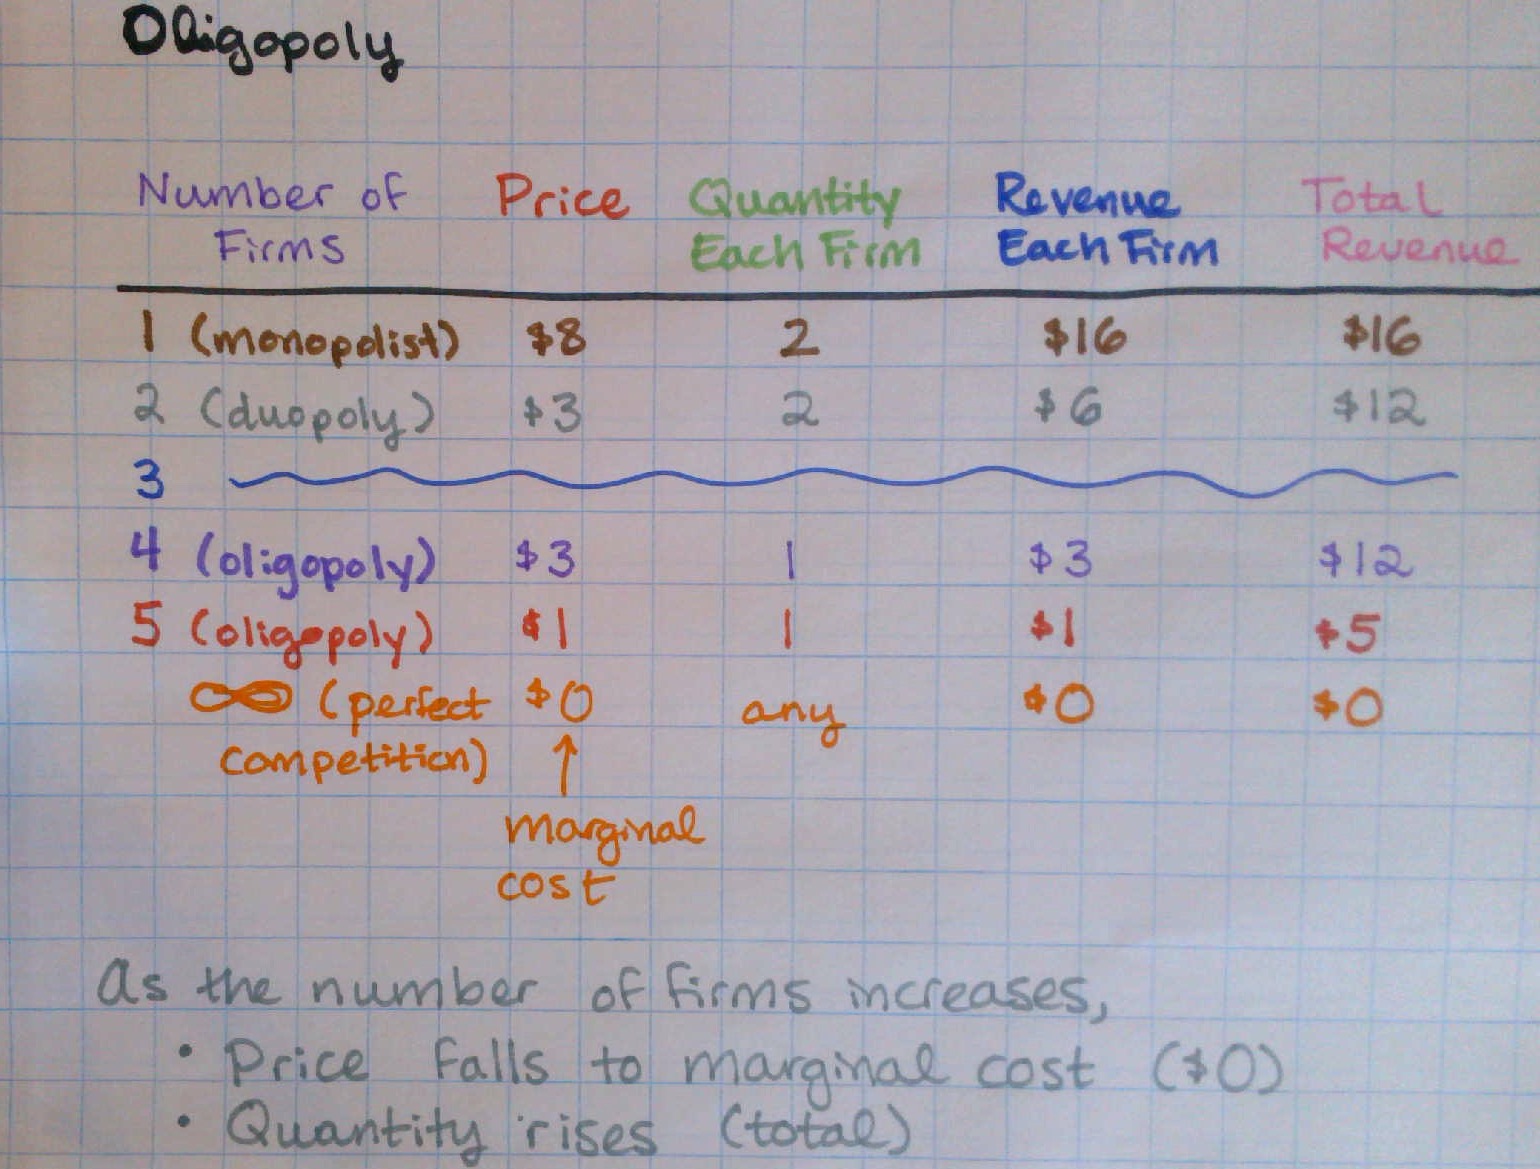 Oligopoly
Number of Firms Price Quantity Each Firm Revenue Each Firm Total Revenue
1 (monopolist) $8 2 $16 $16
2 (duopoly) $3 2 $6 $12
3
4 (oligopoly) $3 1 $3 $12
5 (oligopoly) $1 1 $1 $5
∞ (perfect competition) $0 any $0 $0
↑
marginal
cost
As the number of firms increases,
• Price falls to marginal cost ($0)
• Quantity rises (total)